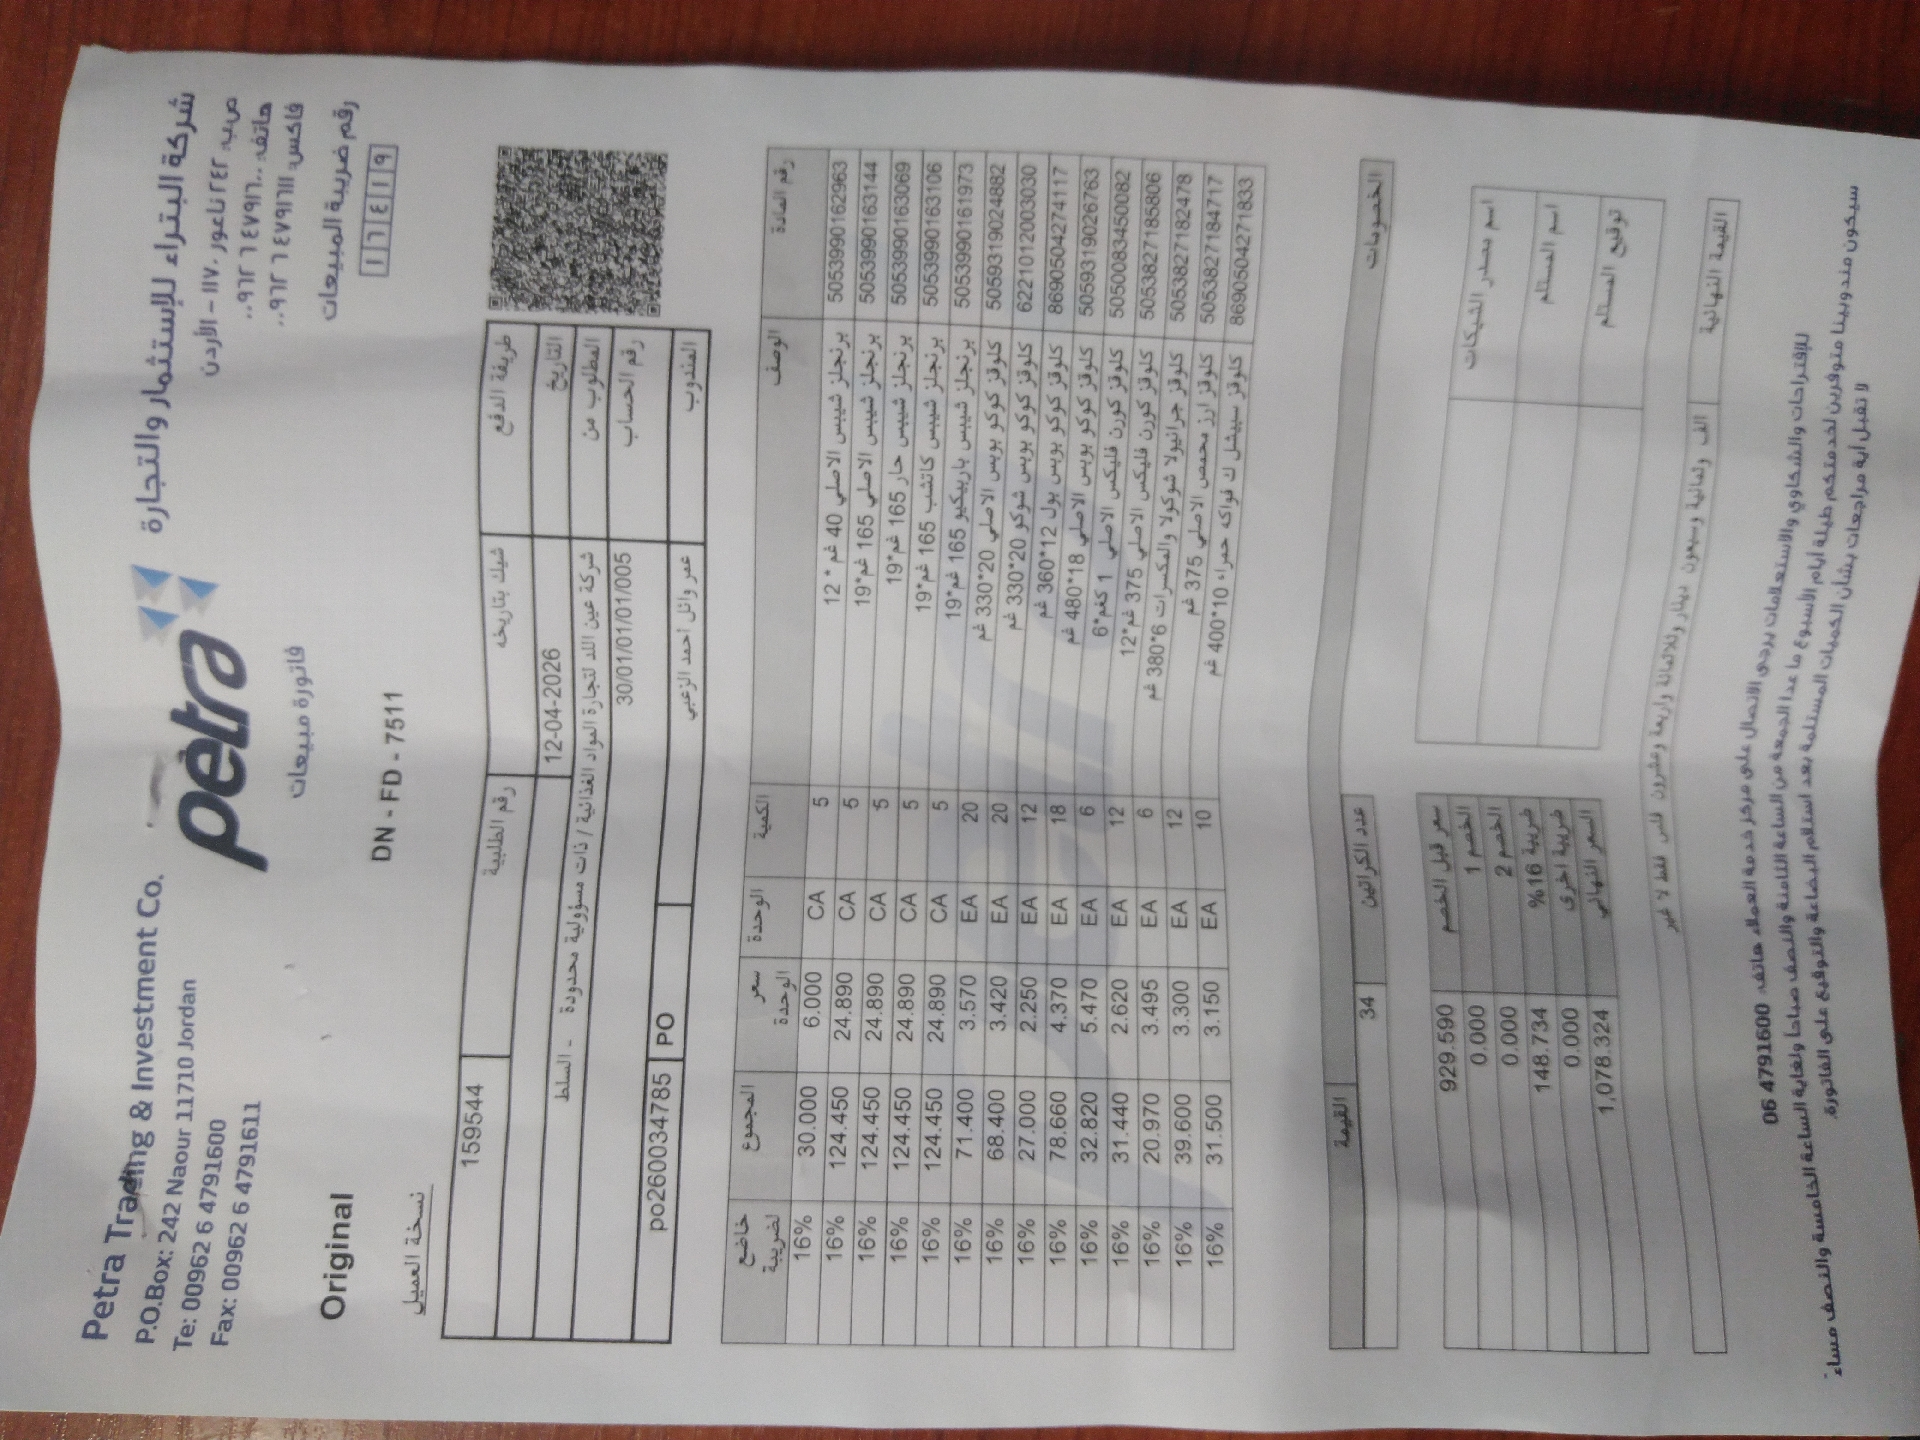 Petra Trading & Investment Co.
P.O.Box: 242 Naour 11710 Jordan
Te: 00962 6 4791600
Fax: 00962 6 4791611
petra
شركة البتراء للإستثمار والتجارة
ص.ب: ٢٤٢ ناعور ١١٧١٠ - الأردن
هاتف: ٤٧٩١٦٠٠ ٦ ٠٠٩٦٢
فاكس: ٤٧٩١٦١١ ٦ ٠٠٩٦٢
رقم ضريبة المبيعات
١ ٦ ٤ ١ ٩
فاتورة مبيعات
Original
نسخة العميل
DN - FD - 7511
طريقة الدفع شيك بتاريخه رقم الطلبية 159544
التاريخ 12-04-2026
المطلوب من شركة عين اللد لتجارة المواد الغذائية / ذات مسؤولية محدودة - السلط
رقم الحساب 30/01/01/01/005
المندوب عمر وائل احمد الزعبي PO po2600034785
رقم المادة الوصف الكمية الوحدة سعر الوحدة المجموع خاضع لضريبة
5053990162963 برنجلز شيبس الاصلي 40 غم * 12 5 CA 6.000 30.000 16%
5053990163144 برنجلز شيبس الاصلي 165 غم*19 5 CA 24.890 124.450 16%
5053990163069 برنجلز شيبس حار 165 غم*19 5 CA 24.890 124.450 16%
5053990163106 برنجلز شيبس كاتشب 165 غم*19 5 CA 24.890 124.450 16%
5053990161973 برنجلز شيبس باربيكيو 165 غم*19 5 CA 24.890 124.450 16%
5059319024882 كلوقز كوكو بوبس الاصلي 20*330 غم 20 EA 3.570 71.400 16%
6221012003030 كلوقز كوكو بوبس شوكو 20*330 غم 20 EA 3.420 68.400 16%
8690504274117 كلوقز كوكو بوبس بول 12*360 غم 12 EA 2.250 27.000 16%
5059319026763 كلوقز كوكو بوبس الاصلي 18*480 غم 18 EA 4.370 78.660 16%
5050083450082 كلوقز كورن فليكس الاصلي 1 كغم*6 6 EA 5.470 32.820 16%
5053827185806 كلوقز كورن فليكس الاصلي 375 غم*12 12 EA 2.620 31.440 16%
5053827182478 كلوقز جرانيولا شوكولا والمكسرات 6*380 غم 6 EA 3.495 20.970 16%
5053827184717 كلوقز ارز محمص الاصلي 375 غم 12 EA 3.300 39.600 16%
8690504271833 كلوقز سبيشل ك فواكه حمراء 10*400 غم 10 EA 3.150 31.500 16%
الخصومات عدد الكراتين القيمة
34
سعر قبل الخصم 929.590
الخصم 1 0.000
الخصم 2 0.000
ضريبة 16% 148.734
ضريبة اخرى 0.000
السعر النهائي 1,078.324
اسم مصدر الشيكات
اسم المستلم
توقيع المستلم
القيمة النهائية الف وثمانية وسبعون دينار وثلاثمائة واربعة وعشرون فلس فقط لا غير
للإقتراحات والشكاوي والاستعلامات يرجى الاتصال على مركز خدمة العملاء هاتف: 06 4791600
سيكون مندوبينا متوفرين لخدمتكم طيلة أيام الأسبوع ما عدا الجمعة من الساعة الثامنة والنصف صباحا ولغاية الساعة الخامسة والنصف مساء
لا تقبل أية مراجعات بشأن الكميات المستلمة بعد استلام البضاعة والتوقيع على الفاتورة.